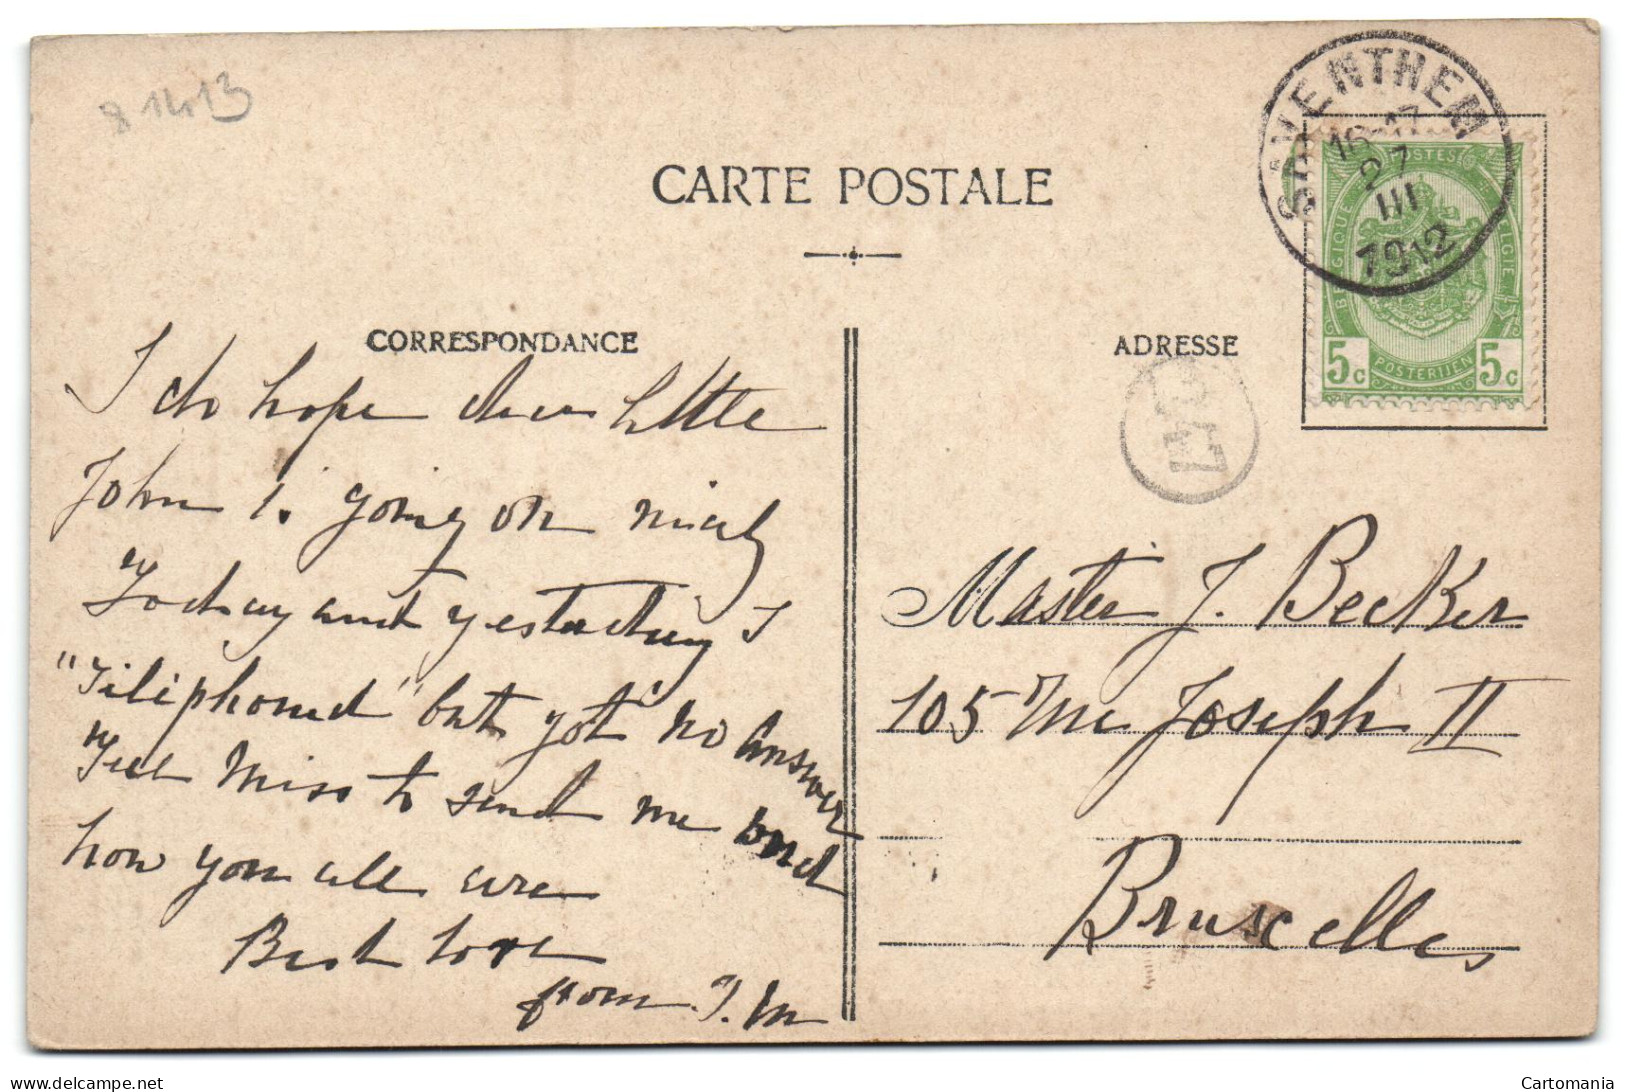 8 1413
SAVENTHEM
16-17
27
III
1912
CARTE POSTALE
POSTES
BELGIQUE
BELGIE
5c POSTERIJEN 5c
CORRESPONDANCE
ADRESSE
I do hope dear little
John is going on nicely
Today and yesterday I
"Telephoned" but got no answer
Tell Miss to send me word
how you all are
Best love
from J. M
Master J. Becker
105 Rue Joseph II
Bruxelles
delcampe.net
Cartomania